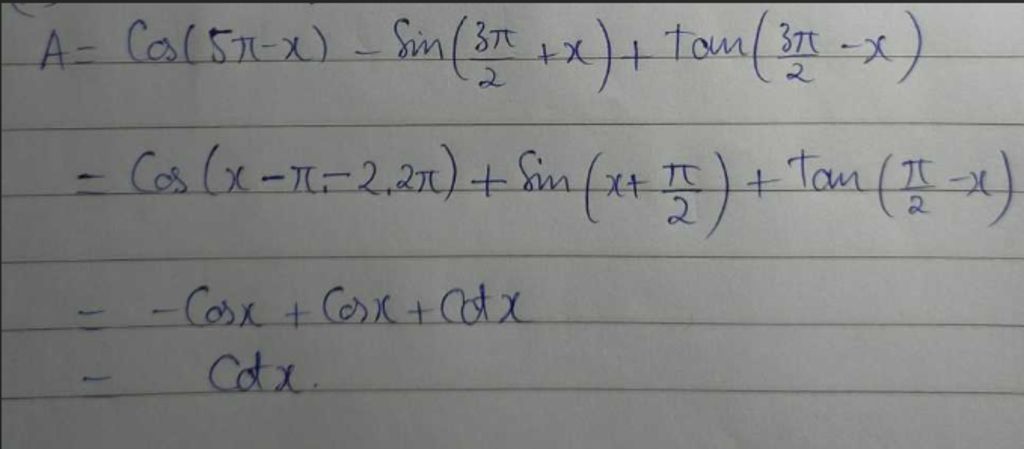 A = Cos(5π-x) - Sin(3π/2 +x) + tan(3π/2 -x)
= Cos(x-π-2.2π) + Sin(x+ π/2) + Tan(π/2 -x)
= -Cosx + Cosx + Cotx
= Cotx.